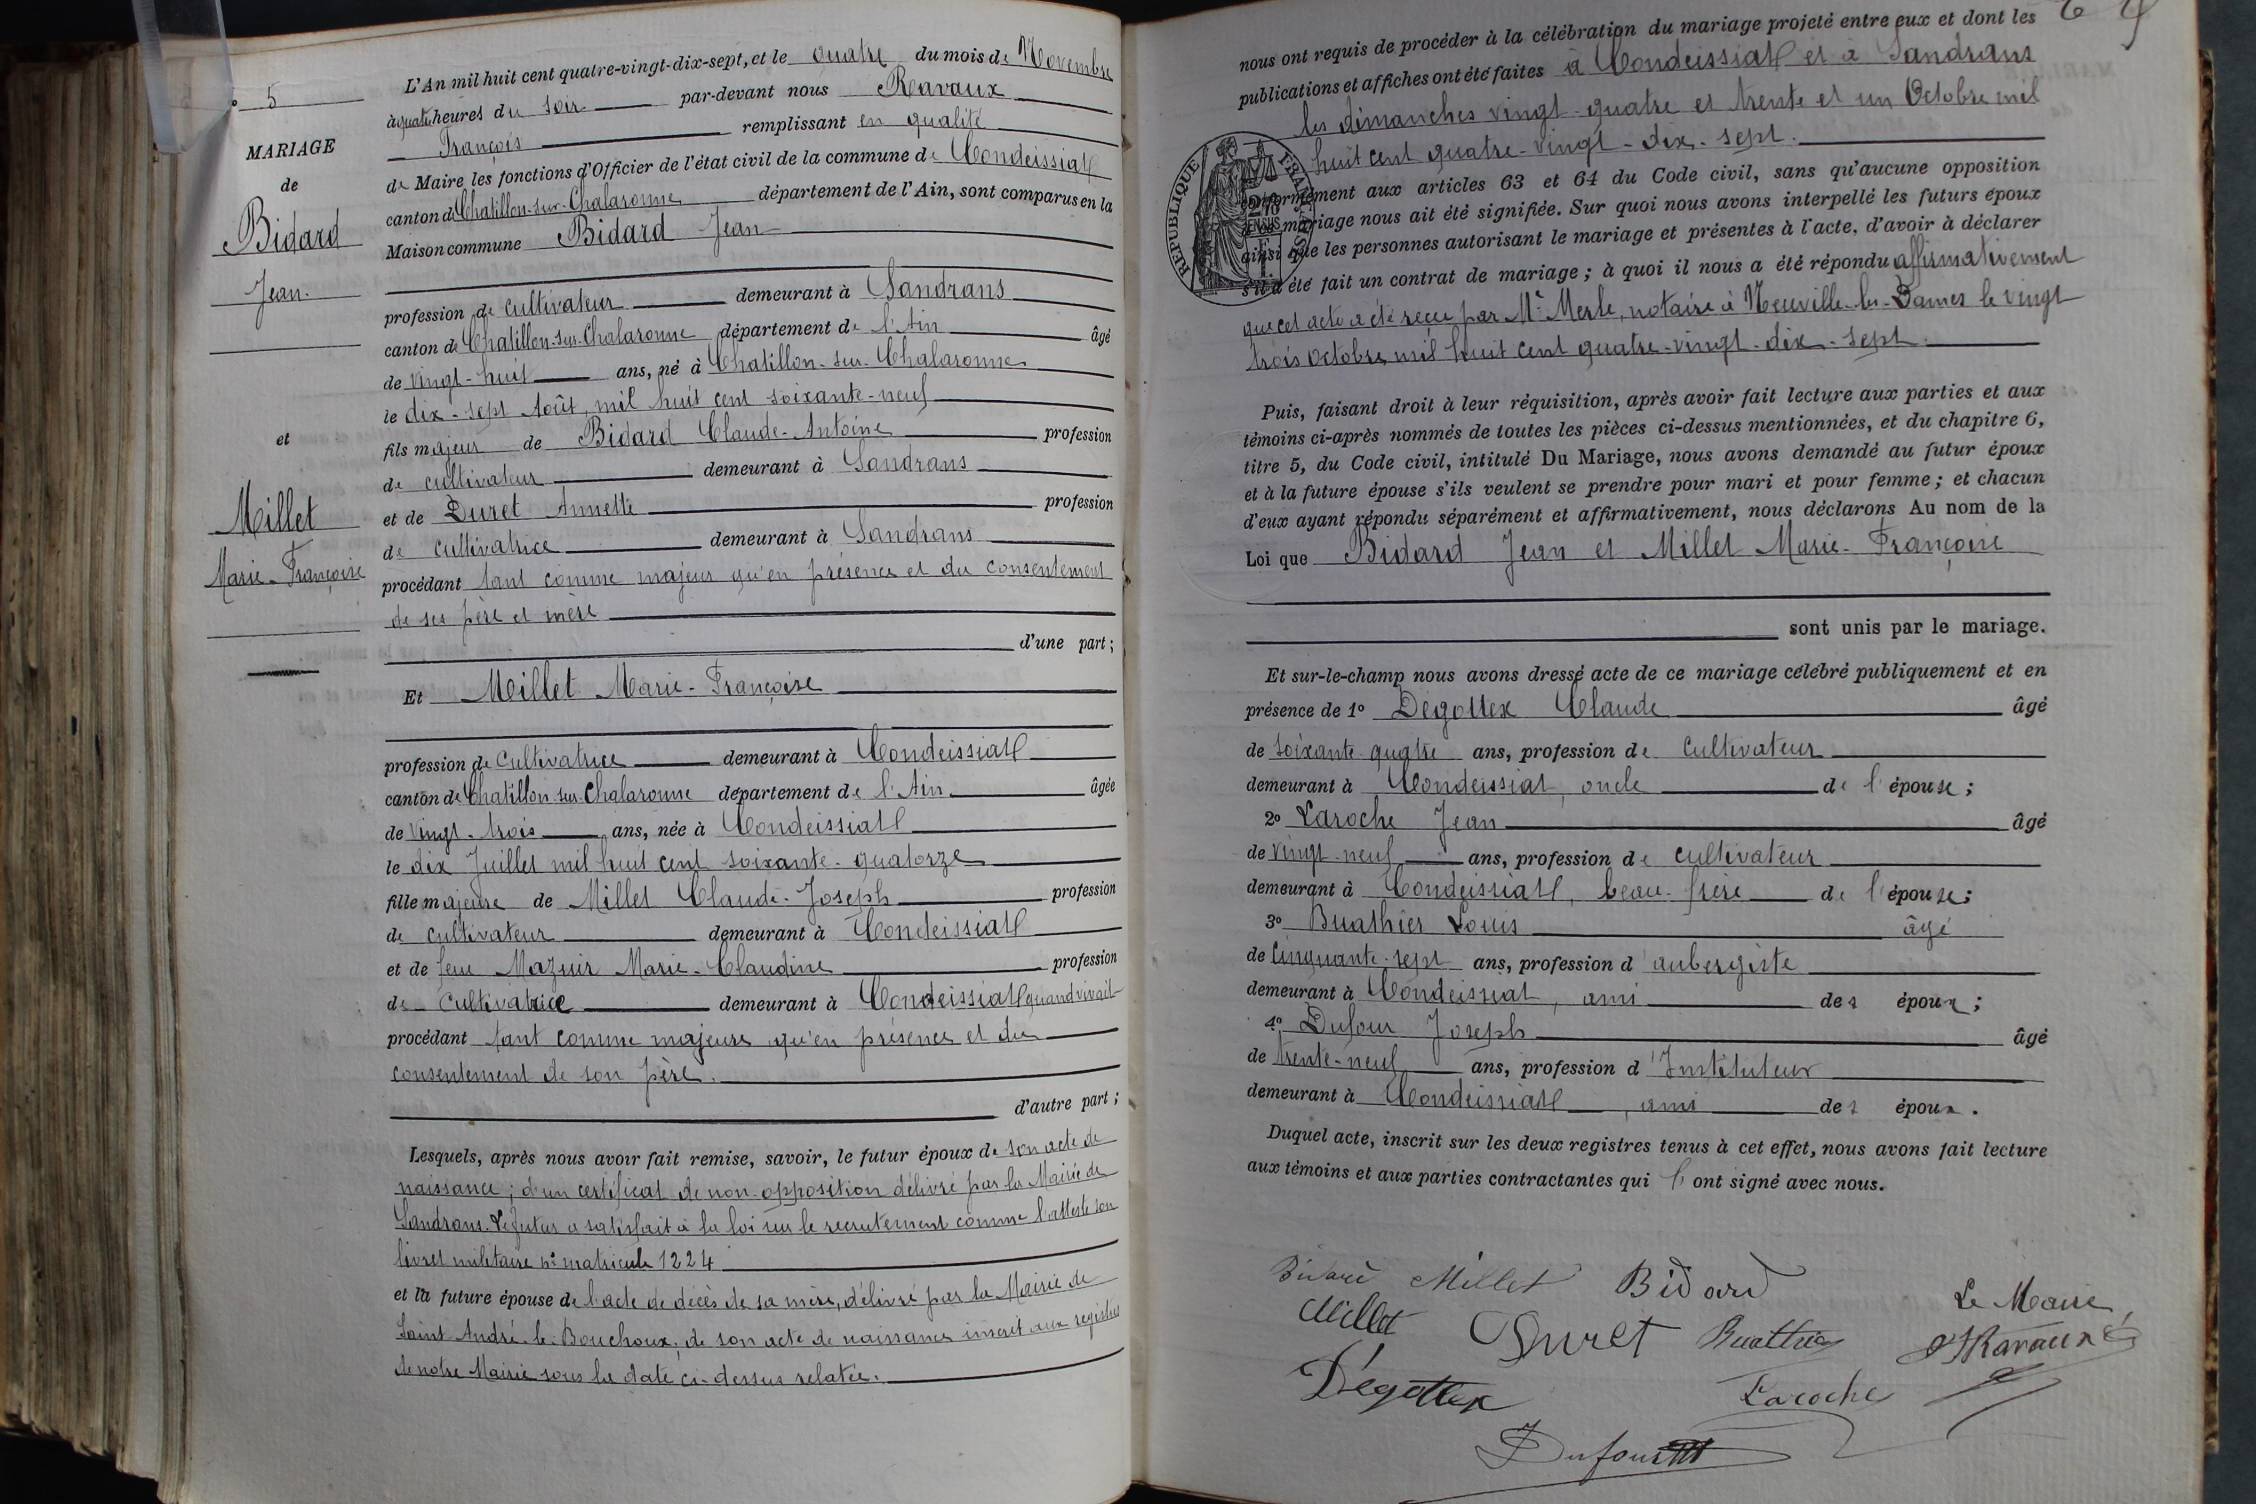 5
MARIAGE
de
Bidard
Jean.
et
Millet
Marie-Françoise
L'An mil huit cent quatre-vingt-dix-sept, et le quatre du mois de Novembre
à quatre heures du soir par-devant nous Ravaux
François remplissant en qualité
de Maire les fonctions d'Officier de l'état civil de la commune de Condeissiat
canton de Chatillon-sur-Chalaronne département de l'Ain, sont comparus en la
Maison commune Bidard Jean
profession de cultivateur demeurant à Sandrans
canton de Chatillon-sur-Chalaronne département de l'Ain âgé
de vingt-huit ans, né à Chatillon-sur-Chalaronne
le dix-sept Août, mil huit cent soixante-neuf
fils majeur de Bidard Claude-Antoine profession
de cultivateur demeurant à Sandrans
et de Duret Annette profession
de cultivatrice demeurant à Sandrans
procédant tant comme majeur qu'en présence et du consentement
de ses père et mère
d'une part;
Et Millet Marie-Françoise
profession de Cultivatrice demeurant à Condeissiat
canton de Chatillon-sur-Chalaronne département de l'Ain âgée
de vingt-trois ans, née à Condeissiat
le dix Juillet mil huit cent soixante-quatorze
fille majeure de Millet Claude-Joseph profession
de cultivateur demeurant à Condeissiat
et de feue Mazuir Marie-Claudine profession
de cultivatrice demeurant à Condeissiat quand vivait
procédant tant comme majeure qu'en présence et du
consentement de son père.
d'autre part;
Lesquels, après nous avoir fait remise, savoir, le futur époux de son acte de
naissance; d'un certificat de non-opposition délivré par la Mairie de
Sandrans. Le futur a satisfait à la loi sur le recrutement comme l'atteste son
livret militaire nº matricule 1224
et la future épouse de l'acte de décès de sa mère, délivré par la Mairie de
Saint André-le-Bouchoux; de son acte de naissance inscrit aux registres
de notre Mairie sous la date ci-dessus relatée.
nous ont requis de procéder à la célébration du mariage projeté entre eux et dont les
publications et affiches ont été faites à Condeissiat et à Sandrans
les dimanches vingt-quatre et trente et un Octobre mil
huit cent quatre-vingt-dix-sept.
RÉPUBLIQUE FRANÇAISE
conformément aux articles 63 et 64 du Code civil, sans qu'aucune opposition
au mariage nous ait été signifiée. Sur quoi nous avons interpellé les futurs époux
ainsi que les personnes autorisant le mariage et présentes à l'acte, d'avoir à déclarer
s'il a été fait un contrat de mariage; à quoi il nous a été répondu affirmativement
que cet acte a été reçu par Mᵉ Merle, notaire à Neuville-les-Dames le vingt
trois octobre mil huit cent quatre-vingt-dix-sept
Puis, faisant droit à leur réquisition, après avoir fait lecture aux parties et aux
témoins ci-après nommés de toutes les pièces ci-dessus mentionnées, et du chapitre 6,
titre 5, du Code civil, intitulé Du Mariage, nous avons demandé au futur époux
et à la future épouse s'ils veulent se prendre pour mari et pour femme; et chacun
d'eux ayant répondu séparément et affirmativement, nous déclarons Au nom de la
Loi que Bidard Jean et Millet Marie-Françoise
sont unis par le mariage.
Et sur-le-champ nous avons dressé acte de ce mariage célébré publiquement et en
présence de 1º Dégottex Claude âgé
de soixante quatre ans, profession de cultivateur
demeurant à Condeissiat, oncle de l'épouse;
2º Laroche Jean âgé
de vingt-neuf ans, profession de cultivateur
demeurant à Condeissiat, beau-frère de l'épouse;
3º Buathier Louis âgé
de Cinquante-sept ans, profession d'aubergiste
demeurant à Condeissiat, ami des époux;
4º Dufour Joseph âgé
de trente-neuf ans, profession d'Instituteur
demeurant à Condeissiat, ami des époux.
Duquel acte, inscrit sur les deux registres tenus à cet effet, nous avons fait lecture
aux témoins et aux parties contractantes qui l'ont signé avec nous.
Bidard Millet Bidard
Le Maire,
Millet Duret Buathier Ravaux
Dégottex Laroche
Dufour